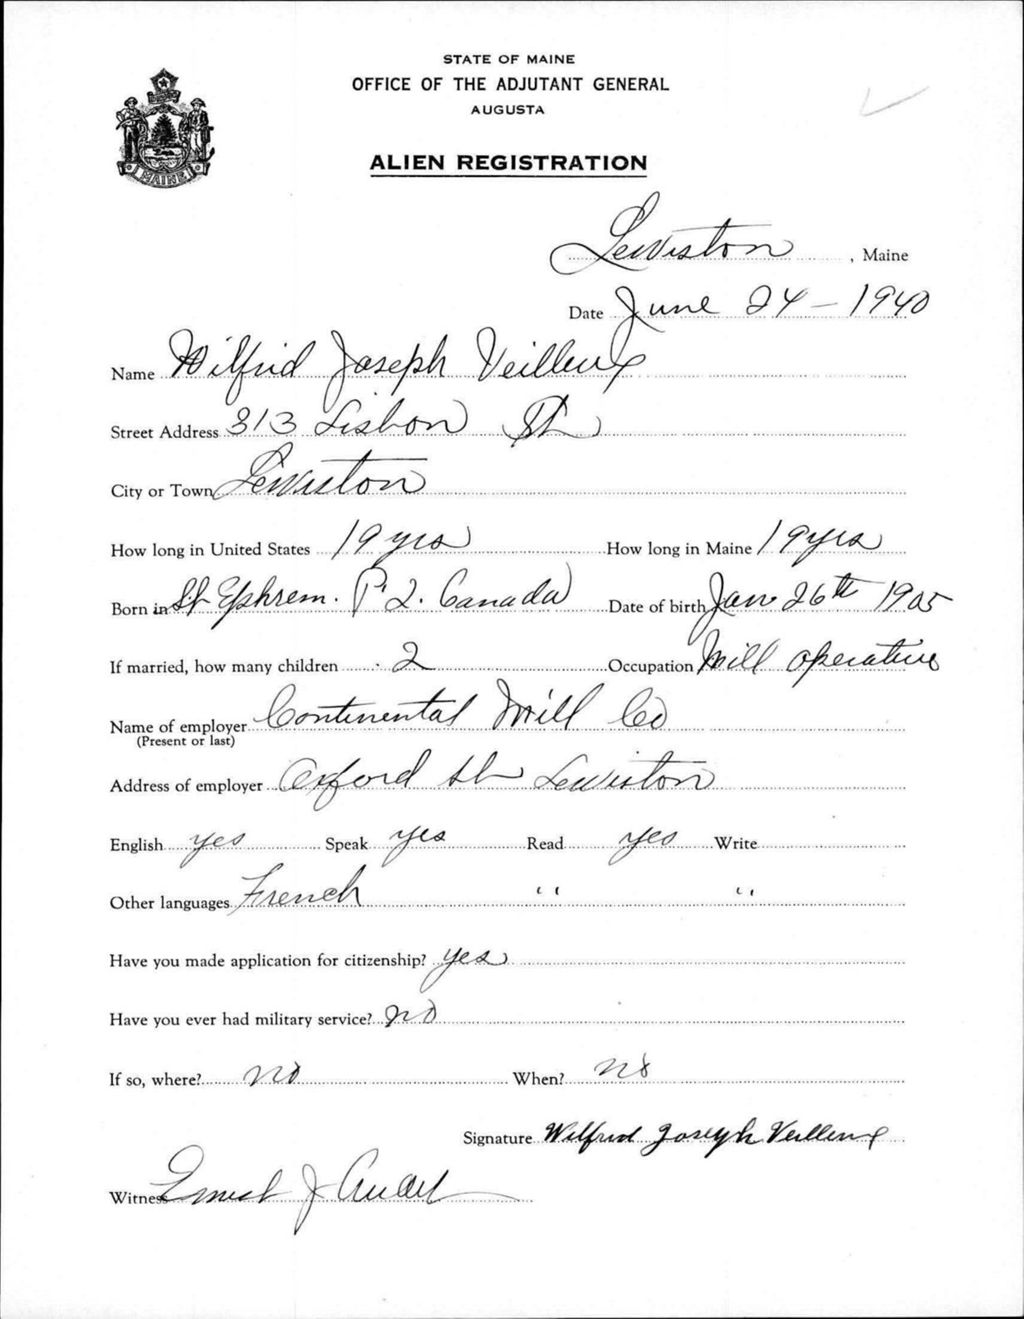 STATE OF MAINE
OFFICE OF THE ADJUTANT GENERAL
AUGUSTA
ALIEN REGISTRATION
MAINE
Lewiston, Maine
Date June 24 - 1940
Name Wilfrid Joseph Veilleux
Street Address 313 Lisbon St
City or Town Lewiston
How long in United States 19 yrs How long in Maine 19 yrs
Born in St Ephrem. P.Q. Canada Date of birth Jan 26th 1905
If married, how many children 2 Occupation Mill operative
Name of employer Continental Mill Co
(Present or last)
Address of employer Oxford St Lewiston
English yes Speak yes Read yes Write
Other languages French " "
Have you made application for citizenship? yes
Have you ever had military service? no
If so, where? no When? no
Signature Wilfrid Joseph Veilleux
Witness Ernest J